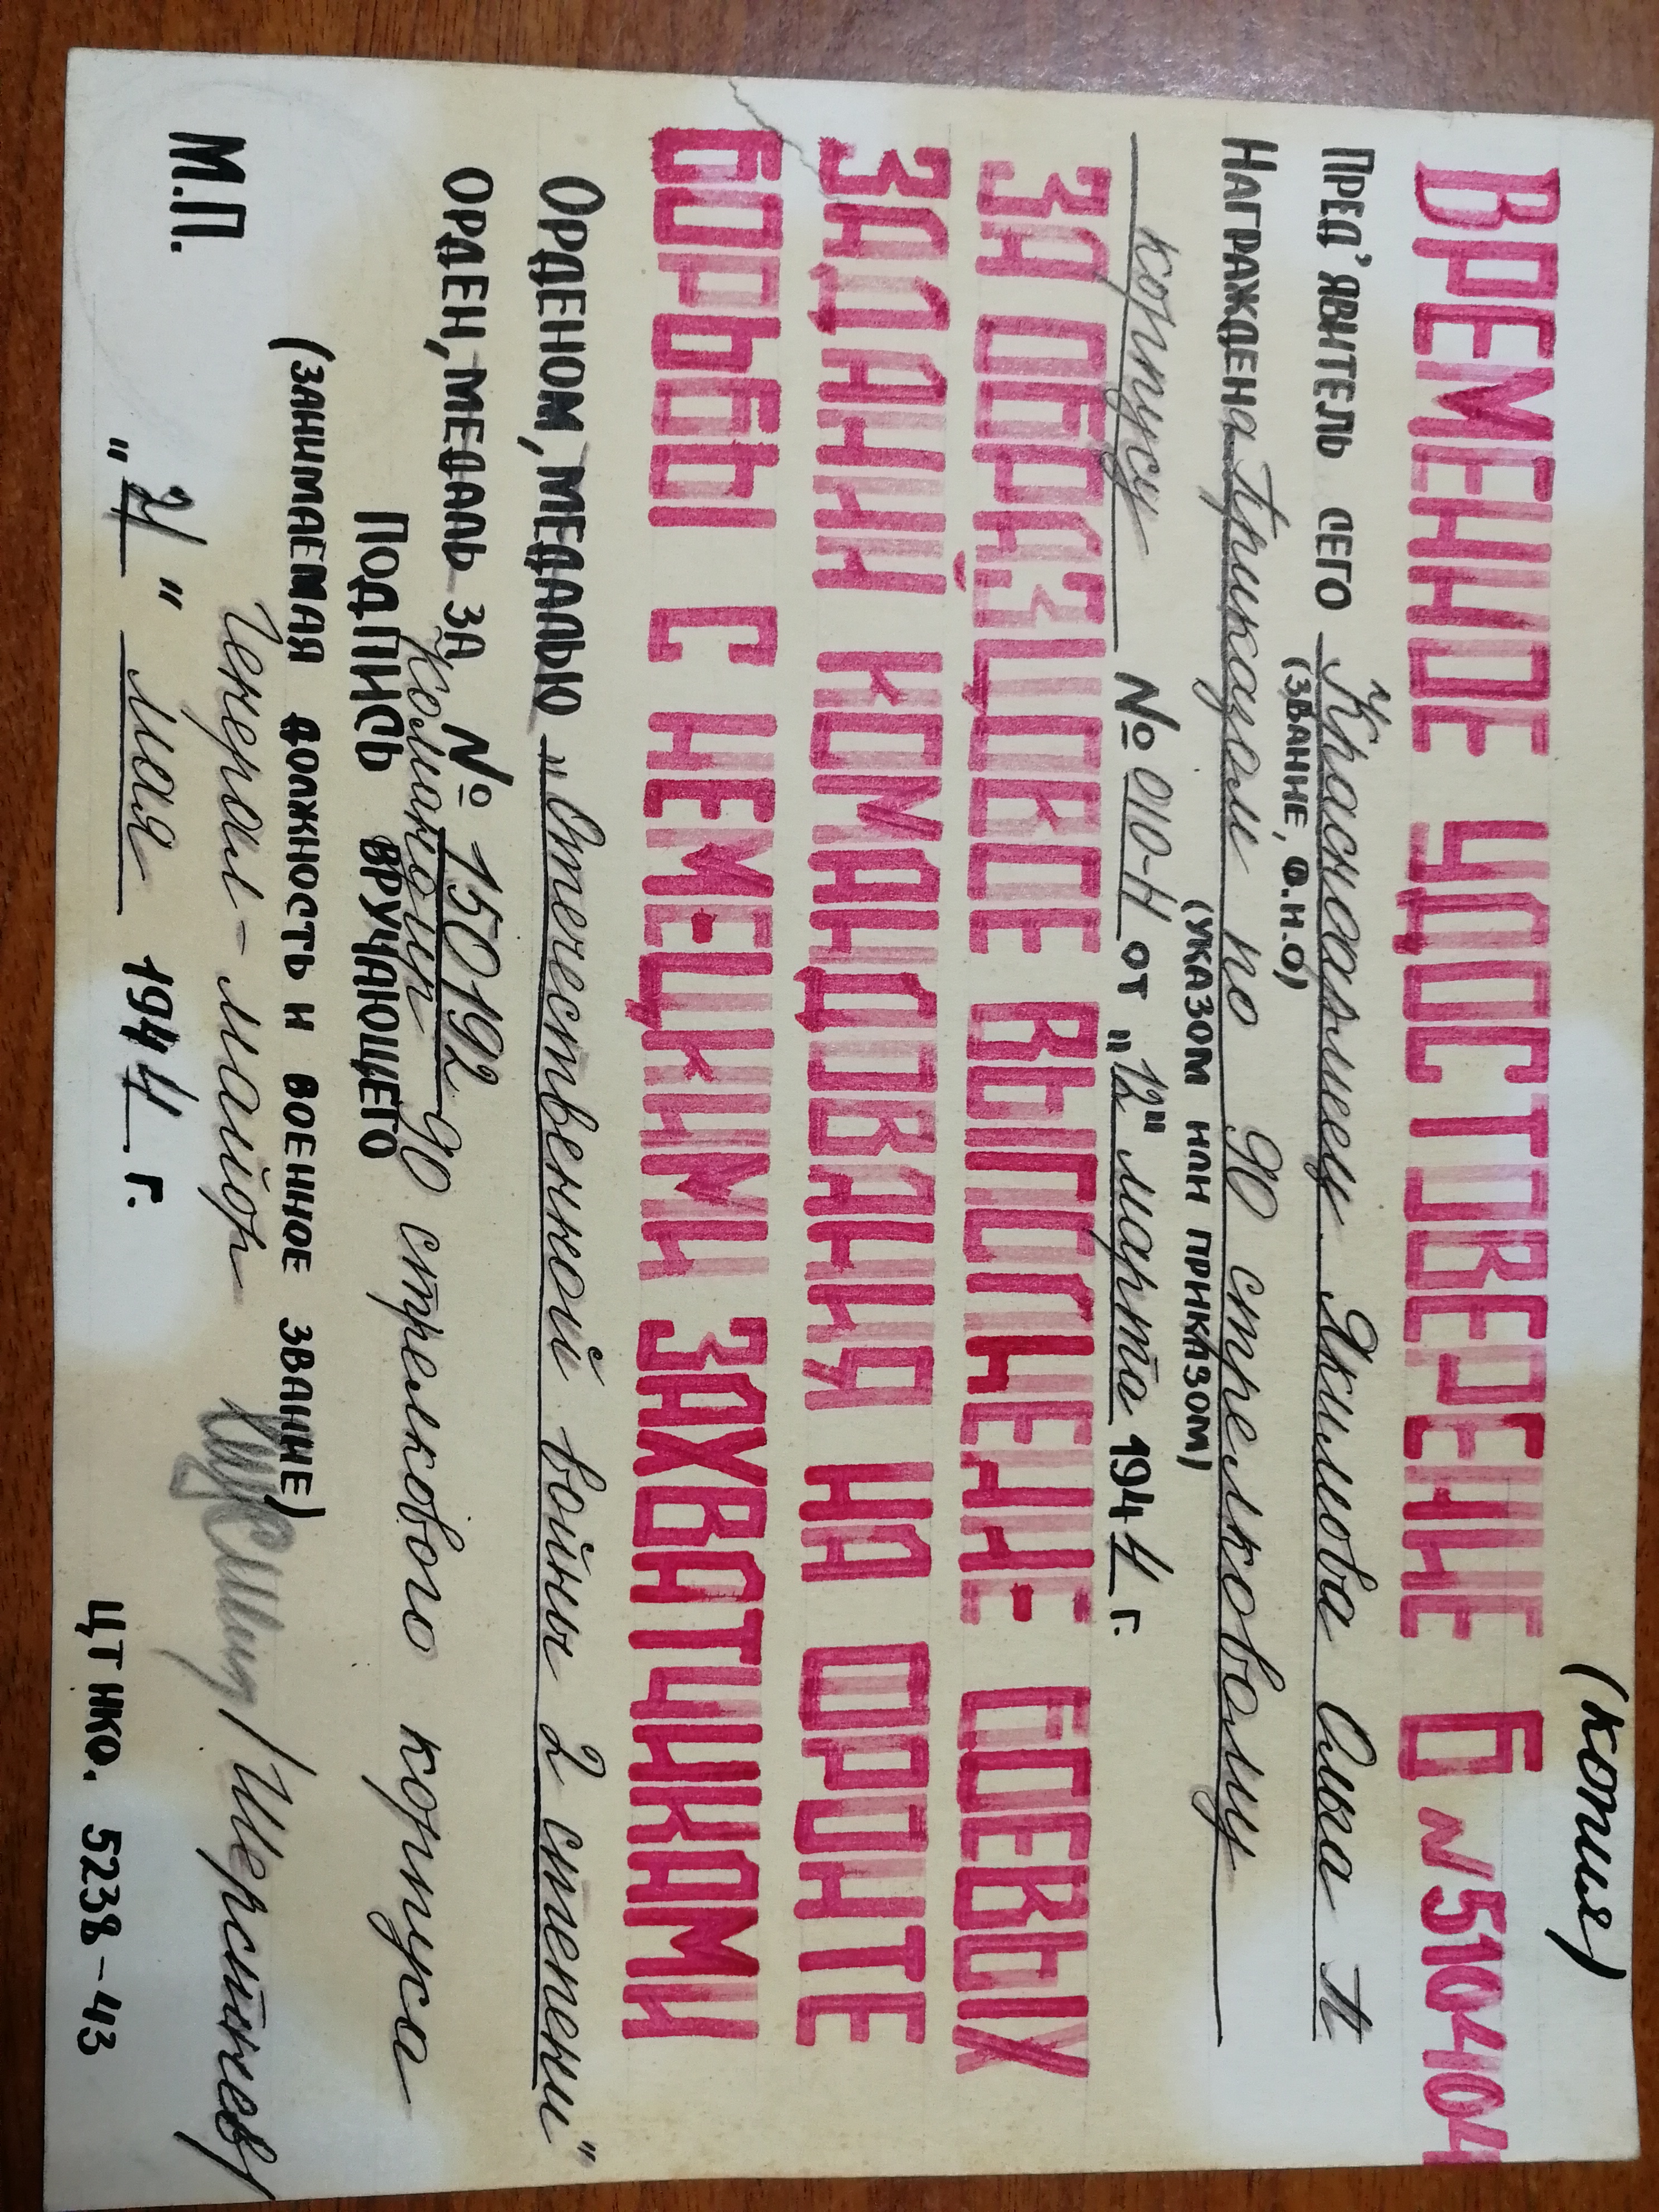 (копия)
ВРЕМЕННОЕ УДОСТОВЕРЕНИЕ Б N510404
ПРЕД'ЯВИТЕЛЬ СЕГО Красноармеец Якимова Ольга П
(ЗВАНИЕ, Ф.И.О)
НАГРАЖДЕНа Приказом по 90 стрелковому
(УКАЗОМ ИЛИ ПРИКАЗОМ)
корпусу № 010-Н ОТ „12" марта 1944 Г.
ЗА ОБРАЗЦОВОЕ ВЫПОЛНЕНИЕ БОЕВЫХ
ЗАДАНИЙ КОМАНДОВАНИЯ НА ФРОНТЕ
БОРЬБЫ С НЕМЕЦКИМИ ЗАХВАТЧИКАМИ
ОРДЕНОМ, МЕДАЛЬЮ „Отечественной войны 2 степени"
ОРДЕН, МЕДАЛЬ ЗА № 150192
Командир 90 стрелкового корпуса
ПОДПИСЬ ВРУЧАЮЩЕГО
(ЗАНИМАЕМАЯ ДОЛЖНОСТЬ И ВОЕННОЕ ЗВАНИЕ)
Генерал-майор /Шерстнев/
М.П.
„21" мая 1944 Г.
ЦТ НКО. 5238-43